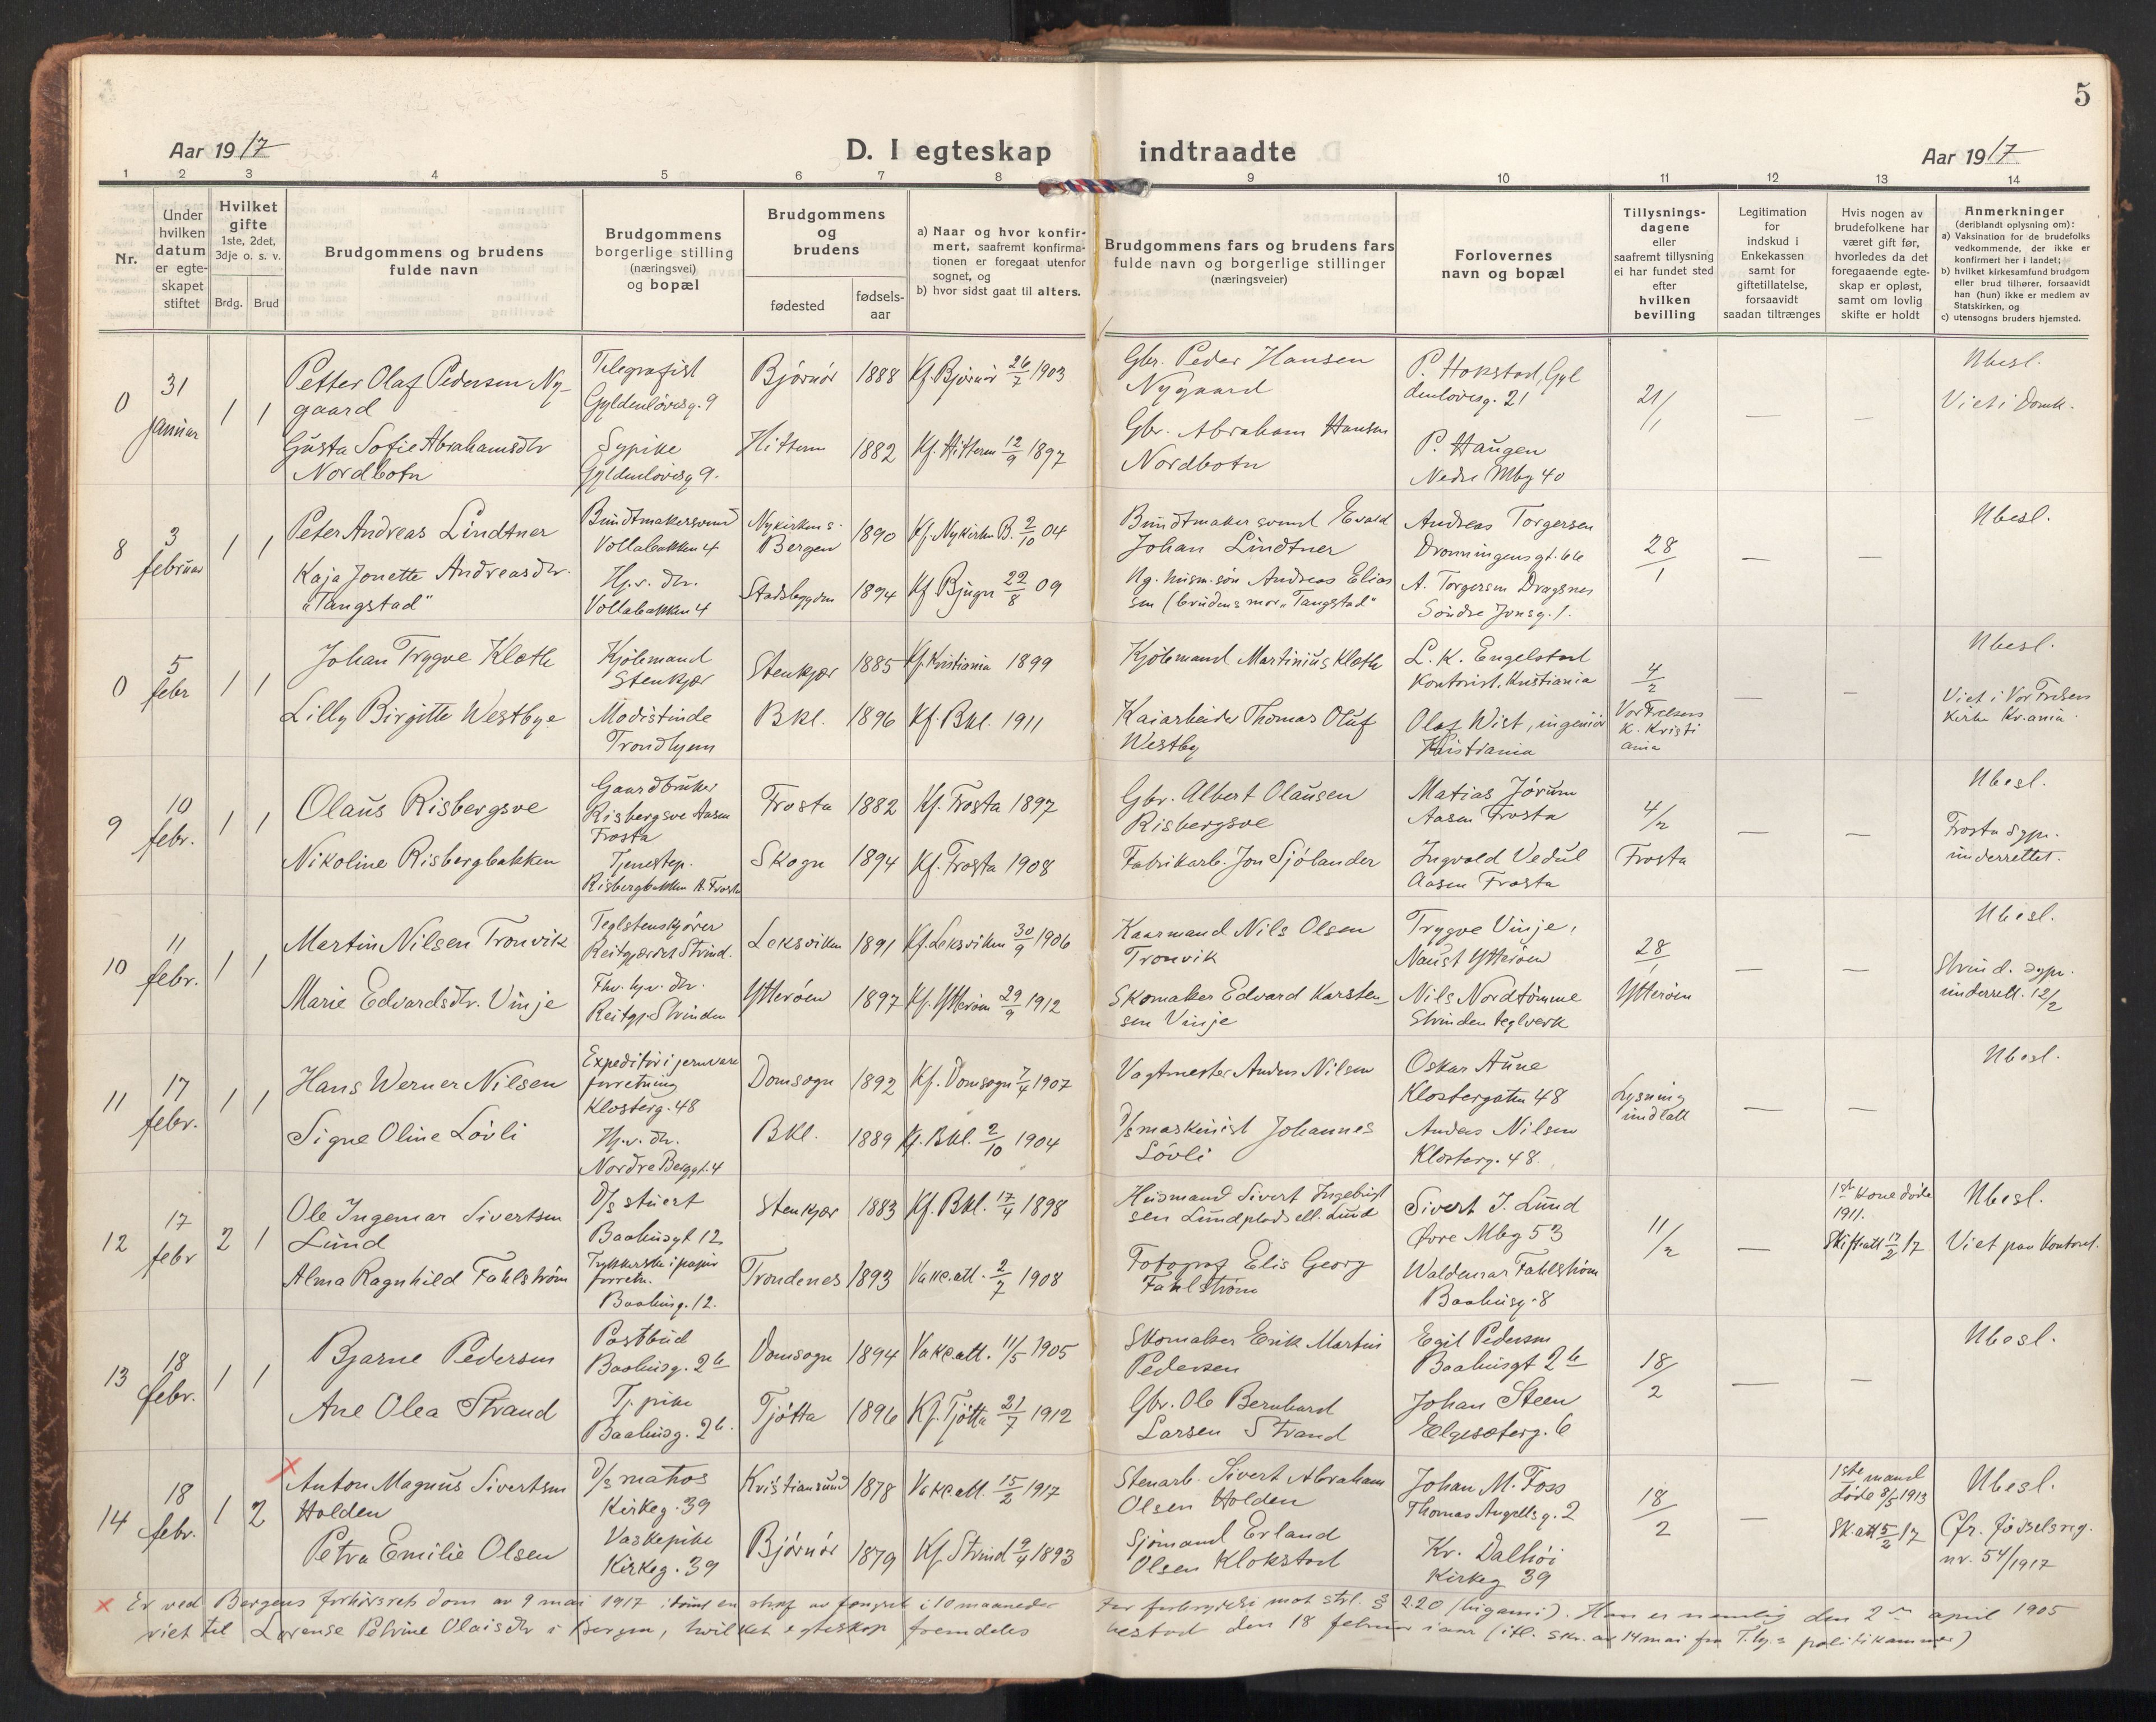 5
Aar 1917
D. I egteskap indtraadte
Aar 1917
1 2 3 4 5 6 7 8 9 10 11 12 13 14
Nr.
Under
hvilken
datum
er egte-
skapet
stiftet
Hvilket
gifte
1ste, 2det,
3dje o. s. v.
Brdg. Brud
Brudgommens og brudens
fulde navn
Brudgommens
borgerlige stilling
(næringsvei)
og bopæl
Brudgommens
og
brudens
fødested
fødsels-
aar
a) Naar og hvor konfir-
mert, saafremt konfirma-
tionen er foregaat utenfor
sognet, og
b) hvor sidst gaat til alters.
Brudgommens fars og brudens fars
fulde navn og borgerlige stillinger
(næringsveier)
Forlovernes
navn og bopæl
Tillysnings-
dagene
eller
saafremt tillysning
ei har fundet sted
efter
hvilken
bevilling
Legitimation
for
indskud i
Enkekassen
samt for
giftetillatelse,
forsaavidt
saadan tiltrænges
Hvis nogen av
brudefolkene har
været gift før,
hvorledes da det
foregaaende egte-
skap er opløst,
samt om lovlig
skifte er holdt
Anmerkninger
(deriblandt oplysning om):
a) Vaksination for de brudefolks
vedkommende, der ikke er
konfirmert her i landet;
b) hvilket kirkesamfund brudgom
eller brud tilhører, forsaavidt
han (hun) ikke er medlem av
Statskirken, og
c) utensogns bruders hjemsted.
0
31
januar
1 1
Petter Olaf Pedersen Ny-
gaard
Gusta Sofie Abrahamsdtr
Nordbotn
Telegrafist
Gyldenløvesg. 9
Sypike
Gyldenløvesg 9.
Bjørnør 1888 Kf. Bjørnør 26/7 1903
Hitteren 1882 Kf. Hitteren 12/9 1897
Gbr. Peder Hansen
Nygaard
Gbr. Abraham Hansen
Nordbotn
P. Hokstad, Gyl
denløvesg. 21
P. Haugen
Nedre Mbg 40
21/1
—
—
Ubesl.
Viet i Domk.
8
3
februar
1 1
Peter Andreas Lindtner
Kaja Jonette Andreasdtr.
"Tangstad"
Buntmakersvend
Vollabakken 4
Hj.v. dtr.
Vollabakken 4
Nykirkens
Bergen 1890 Kf. Nykirken B. 2/10 04
Stadsbygden 1894 Kf Bjugn 22/8 09
Buntmakersvend Evald
Johan Lindtner
Ug. husm.søn Andreas Elias
sen (brudens mor "Tangstad"
Andreas Torgersen
Dronningensgt. 66
A. Torgersen Dragsnes
Søndre Jonsg. 1.
28/1
—
—
Ubesl.
0
5
febr
1 1
Johan Trygve Kloth
Lilly Birgitte Westbye
Kjøbmand
Stenkjær
Modistinde
Trondhjem
Stenkjær 1885 Kf. Kristiania 1899
Bkl. 1896 Kf. Bkl. 1911
Kjøbmand Martinius Kloth
Kaiarbeider Thomas Oluf
Westby
L. K. Engelstad
Kontorist, Kristiania
Olaf Wist, ingeniør
Kristiania
4/2
Vor Frelsers
K. Kristi
ania
—
—
Ubesl.
Viet i Vor Frelsers
Kirke Kr.ania.
9
10
febr.
1 1
Olaus Risbergsve
Nikoline Risbergbakken
Gaardbruker
Risbergsve Aasen
Frosta
Tjenestep.
Risbergbakken A. Frosta
Frosta 1882 Kf. Frosta 1897
Skogn 1894 Kf. Frosta 1908
Gbr. Albert Olausen
Risbergsve
Fabrikarb. Jon Sjølander
Matias Jørum
Aasen Frosta
Ingvald Vedul
Aasen Frosta
4/2
Frosta
—
—
Ubesl.
Frosta sgpr.
underrettet.
10
11
febr.
1 1
Martin Nilsen Tronvik
Marie Edvardsdtr. Vinje
Teglstenskjører
Reitgjærdet Strind.
Fhv. hj.v. dtr.
Reitgj. Strinden
Leksviken 1891 Kf. Leksviken 30/9 1906
Ytterøen 1897 Kf. Ytterøen 29/9 1912
Kaarmand Nils Olsen
Tronvik
Skomaker Edvard Karsten-
sen Vinje
Trygve Vinje,
Naust Ytterøen
Nils Nordtømme
Strinden teglverk
28/1
Ytterøen
—
—
Ubesl.
Strind. sgpr.
underrett. 12/2
11
17
febr.
1 1
Hans Werner Nilsen
Signe Oline Løvli
Expeditør i jernvare
forretning
Klosterg. 48
Hj.v. dtr.
Nordre Berggt. 4
Domsogn 1892 Kf. Domsogn 7/4 1907
Bkl. 1889 Kf. Bkl. 2/10 1904
Vagtmester Anders Nilsen
D/s maskinist Johannes
Løvli
Oskar Aune
Klostergaten 48
Anders Nilsen
Klosterg. 48.
Lysning
undlatt
—
—
Ubesl.
12
17
febr
2 1
Ole Ingemar Sivertsen
Lund
Alma Ragnhild Fahlstrøm
D/s stuert
Baahusgt 12
Trykkerske i papir
forretn.
Baahusg. 12.
Stenkjær 1883 Kf. Bkl. 17/4 1898
Trondenes 1893 Vakc.att. 2/7 1908
Husmand Sivert Ingebrigt
sen Lundplads ell. Lund
Fotograf Elis Georg
Fahlstrøm
Sivert I. Lund
Øvre Mbg 53
Waldemar Fahlstrøm
Baahusg. 8
11/2
—
1ste kone døde
1911.
Skifteatt 17/2 17
Ubesl.
Viet paa Kontoret.
13
18
febr.
1 1
Bjarne Pedersen
Ane Olea Strand
Postbud
Baahusg. 2b
Tj. pike
Baahusg. 2b.
Domsogn 1894 Vakc.att. 11/5 1905
Tjøtta 1896 Kf. Tjøtta 21/7 1912
Skomaker Erik Martin
Pedersen
Gbr. Ole Bernhard
Larsen Strand
Egil Pedersen
Baahusgt 2b
Johan Steen
Elgesæterg. 6
18/2
—
—
Ubesl.
14
18
febr.
1 2
x Anton Magnus Sivertsen
Holden
Petra Emilie Olsen
D/s matros
Kirkeg. 39
Vaskepike
Kirkeg. 39
Kristiansund 1878 Vakc.att. 15/2 1917
Bjørnør 1879 Kf. Strind 9/4 1893
Stenarb. Sivert Abraham
Olsen Holden
Sjømand Erland
Olsen Klokstad
Johan M. Foss
Thomas Angellsg. 2
Kr. Dalhøi
Kirkeg 39
18/2
—
1ste mand
døde 8/5 1913
Sk.att 5/2 17
Ubesl.
Cfr. fødselsreg.
nr. 54/1917
x Er ved Bergens forhørsrets dom av 9 mai 1917 idømt en straf av fængsel i 10 maaneder for forbrydelse mot strl. § 220 (bigami). Han er nemlig den 2den april 1905
viet til Lorense Petrine Olaisdtr i Bergen, hvilket egteskap fremdeles bestod den 18 februar iaar (itl. skr. av 14 mai fra T.hj.s politikammer)